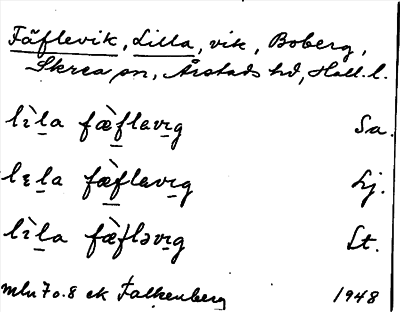 Fäflevik, Lilla, vik, Boberg,
Skrea sn, Årstads hd, Hall. l.
lìla fæ̀flavıg Sa.
lɛla fæ̀flavıg Lj.
lìla fæ̀fləvıg St.
mln 70.8 ek Falkenberg 1948